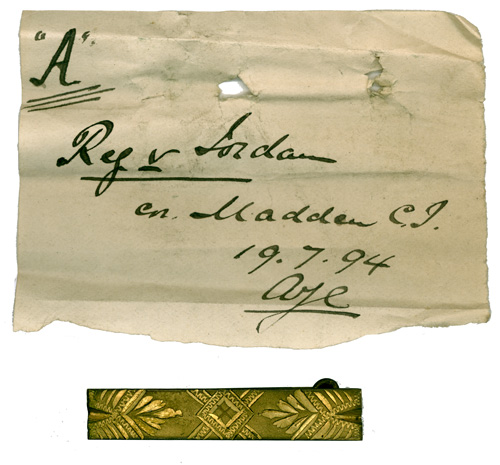 "A".
Reg v Jordan
cor. Madden C.J.
19.7.94